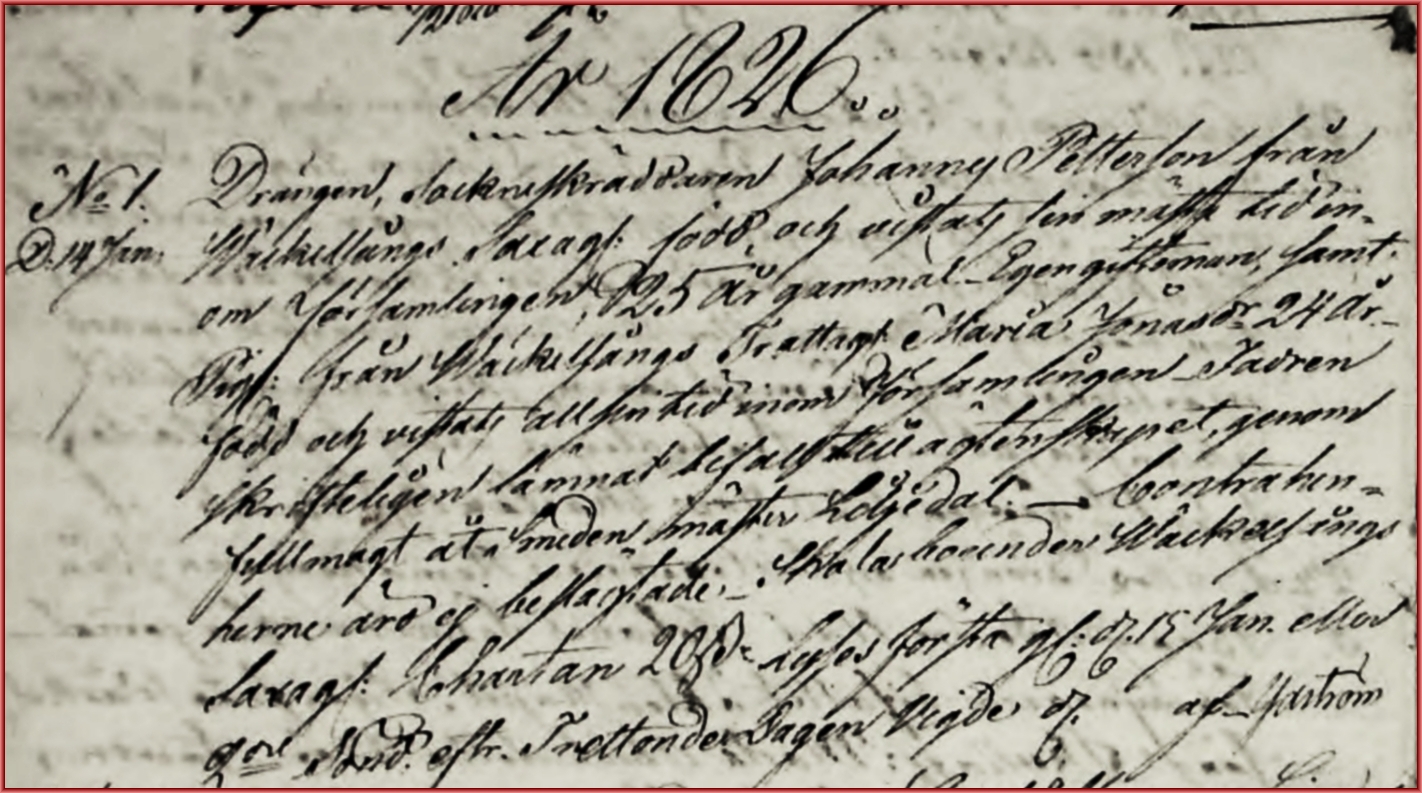 År 1826.
No 1. Drängen, Sockneskräddaren Johannes Petterson från
D. 14 Jan. Wäckelsångs Saxagl: född, och vistats sin mästa tid in-
om Församlingen, 25 år gammal. Egen giftoman, samt
Pig: från Wäckelsångs Trattagl Maria Jonasdr 24 år
född och vistats all sin tid inom Församlingen Fadren
skrifteligen lämnat bifall till ägtenskapet, genom
fullmagt åt Smeden, mäster Liljedal. — Contrahen-
terne äro ej beslägtade. — Skola boende Wäckelsångs
Saxagl. Chartan 20 s. Lyses första g: d. 15 Jan. eller
2dre Sönd. eftr. Trettonde Dagen Vigde d. af